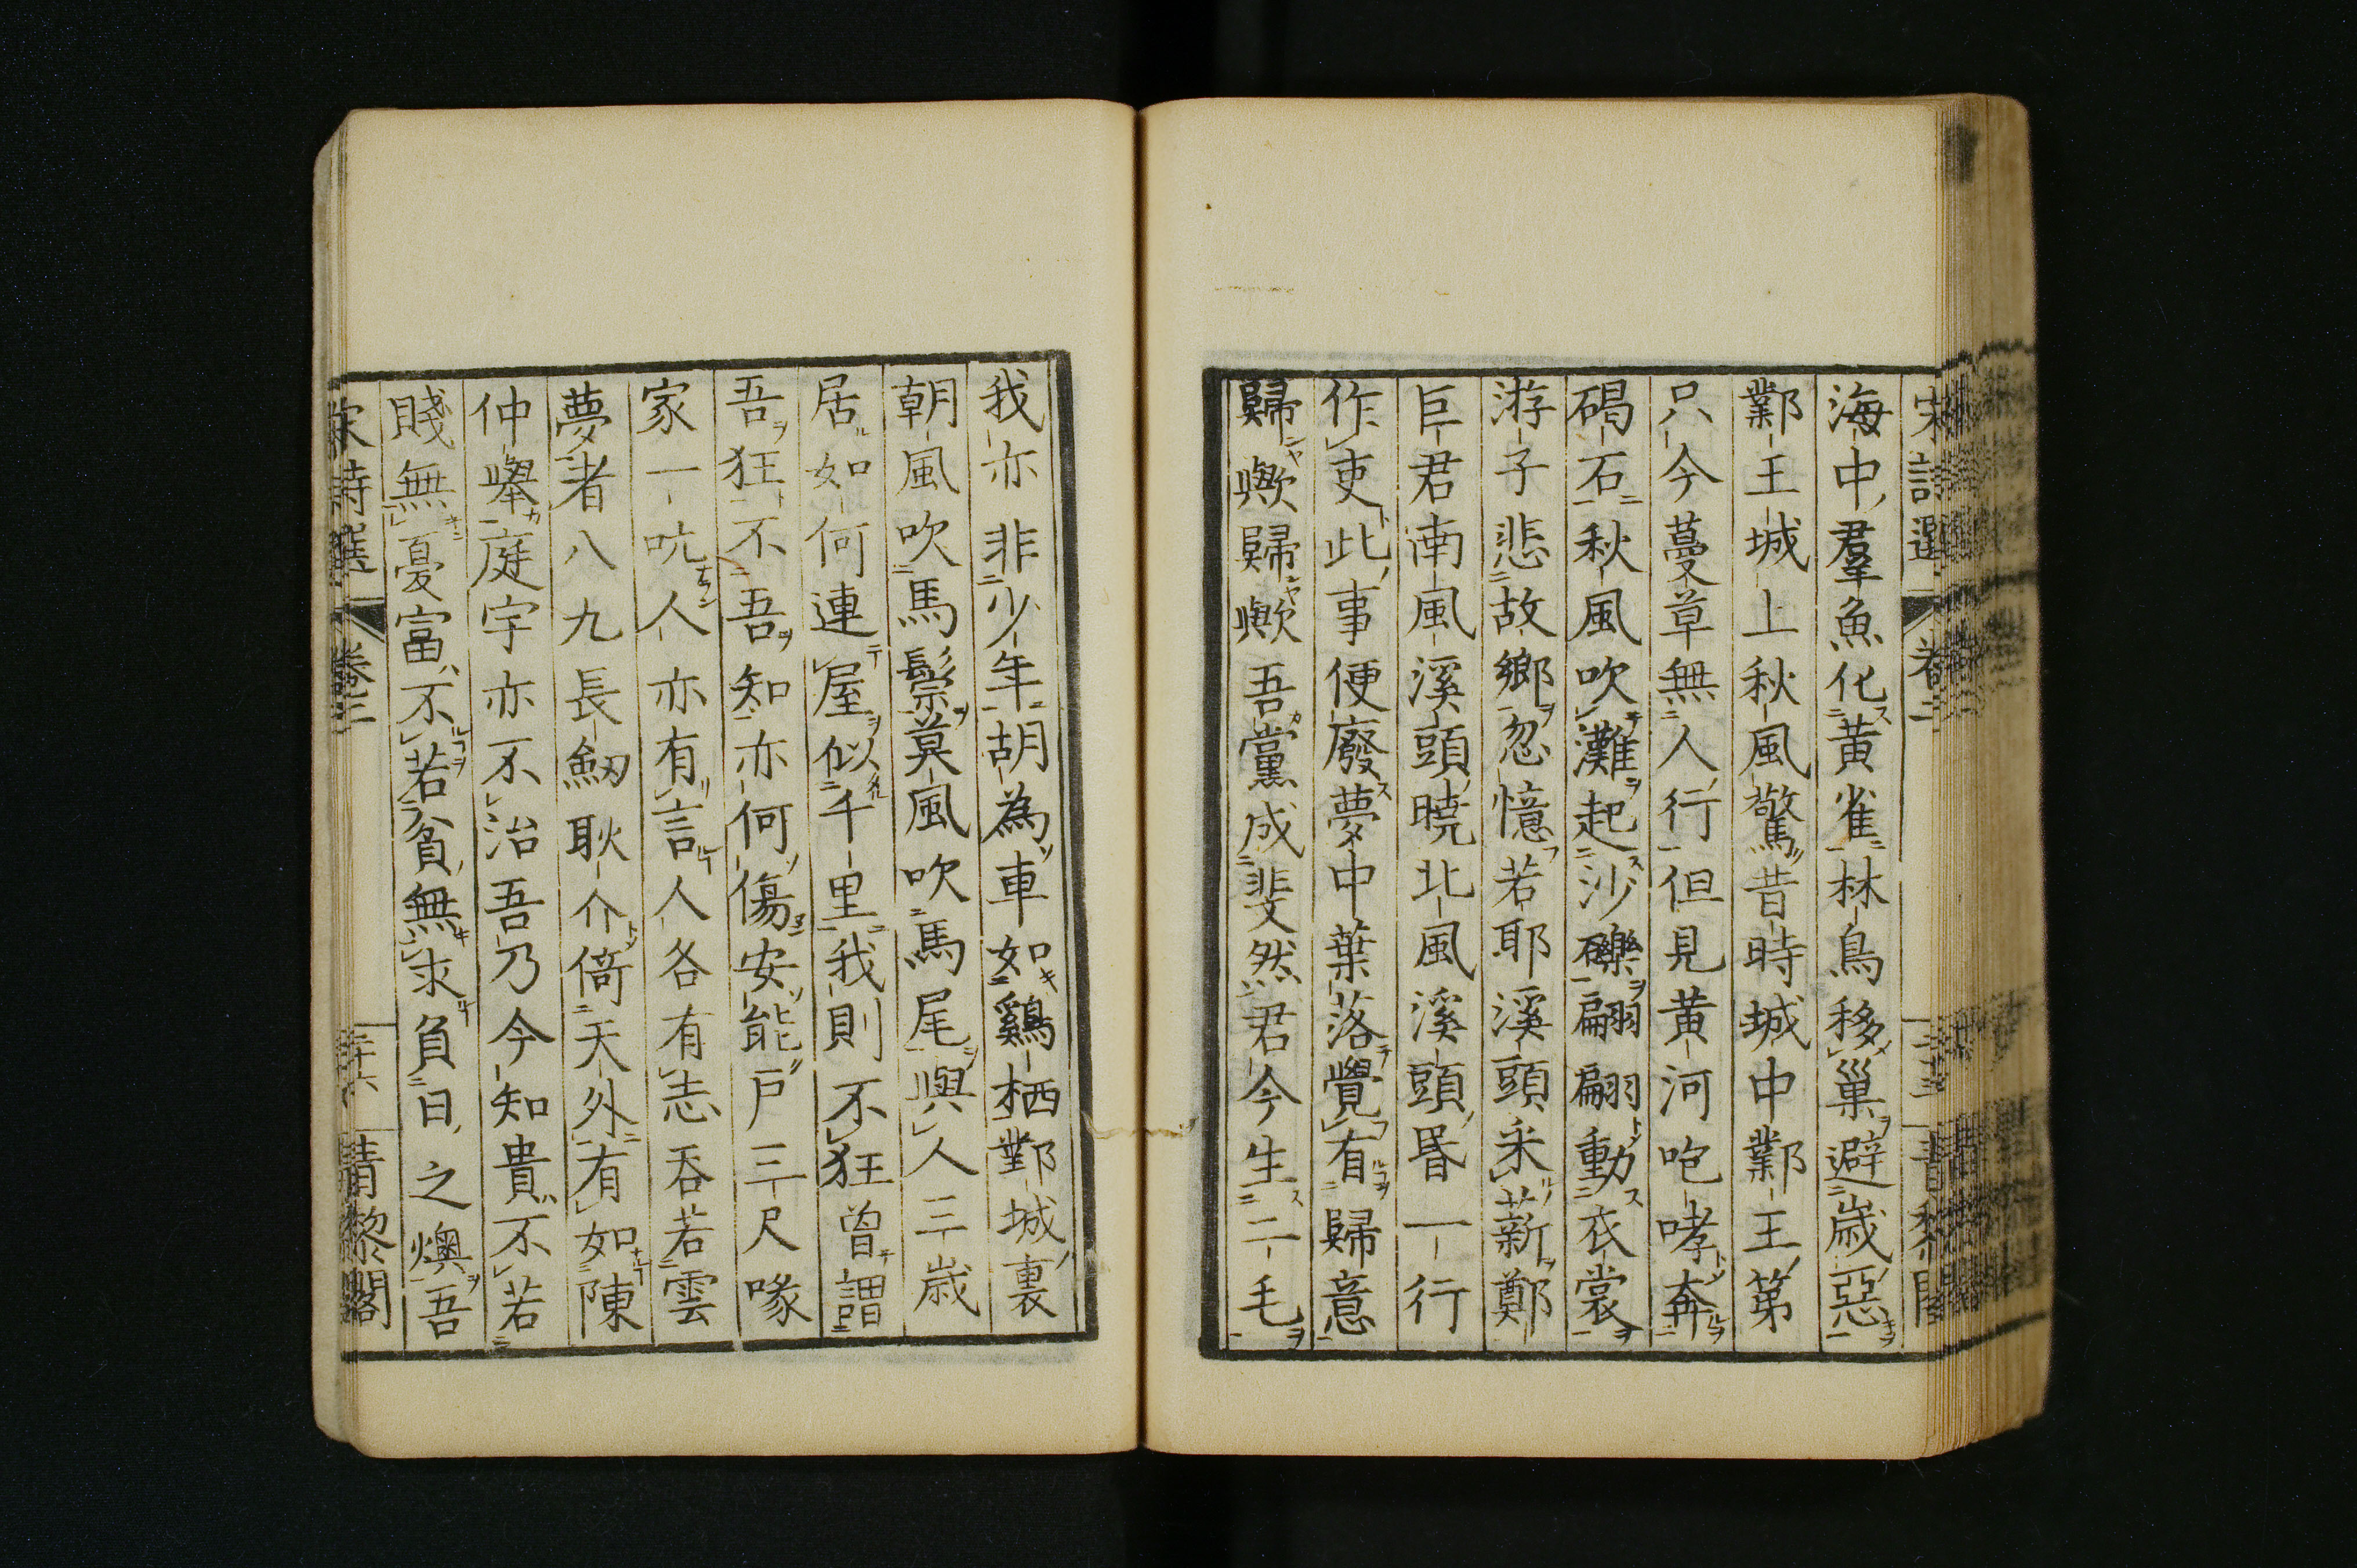 宋詩選 卷二 青黎閣
海中羣魚化黄雀林鳥移巢避歳惡
鄴王城上秋風驚昔時城中鄴王第
只今蔓草無人行但見黄河咆哮奔
碣石秋風吹灘起沙礫翩翩動衣裳
游子悲故鄉忽憶若耶溪頭采薪鄭
巨君南風溪頭曉北風溪頭昏一行
作吏此事便廢夢中葉落覺有歸意
歸歟歸歟吾黨成斐然君今生二毛
我亦非少年胡為車如鷄栖鄴城裏
朝風吹馬鬃莫風吹馬尾與人三歳
居如何連屋似千里我則不狂曽謂
吾狂不吾知亦何傷安能戸三尺喙
家一吭人亦有言人各有志吞若雲
夢者八九長劔耿介倚天外有如陳
仲舉庭宇亦不治吾乃今知貴不若
賤無憂富不若貧無求負日之燠吾
宋詩選 卷二 二十六 青黎閣